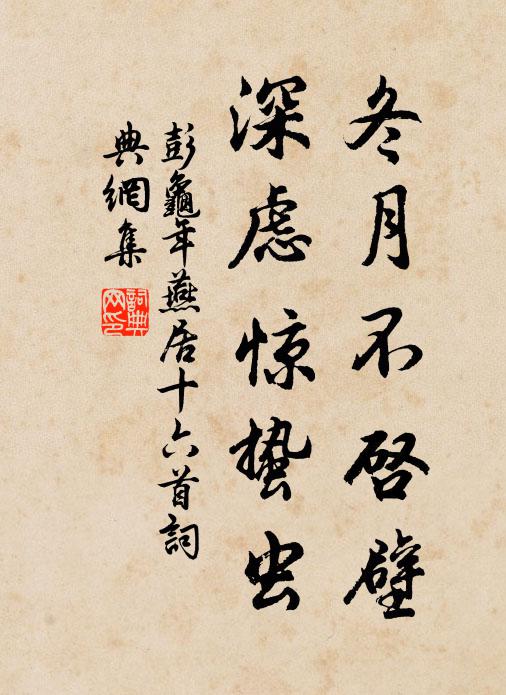 冬月不啓壁
深慮惊蛰虫
彭龜年燕居十六首詞
典網集
詞典網印